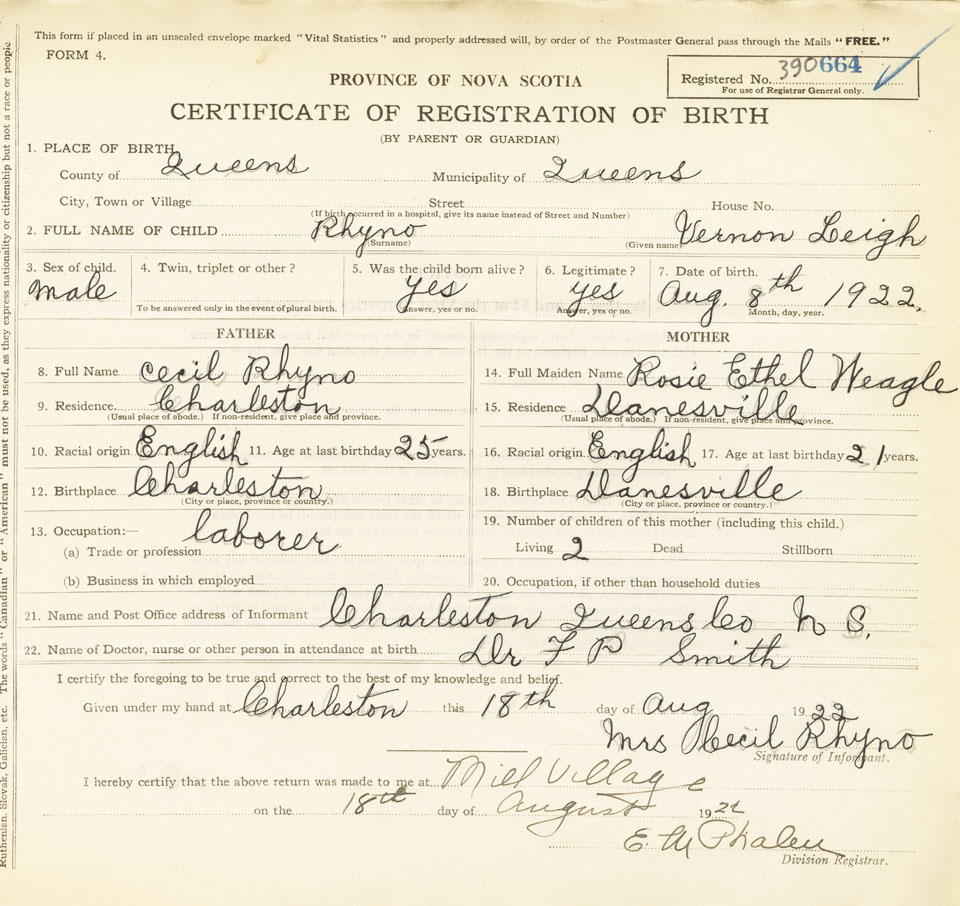 This form if placed in an unsealed envelope marked "Vital Statistics" and properly addressed will, by order of the Postmaster General pass through the Mails "FREE."
FORM 4.
Registered No. 390664
For use of Registrar General only.
PROVINCE OF NOVA SCOTIA
CERTIFICATE OF REGISTRATION OF BIRTH
(BY PARENT OR GUARDIAN)
1. PLACE OF BIRTH
County of Queens Municipality of Queens
City, Town or Village Street House No.
(If birth occurred in a hospital, give its name instead of Street and Number)
2. FULL NAME OF CHILD Rhyno Vernon Leigh
(Surname) (Given name)
3. Sex of child. 4. Twin, triplet or other? 5. Was the child born alive? 6. Legitimate? 7. Date of birth.
male yes yes Aug. 8th 1922.
To be answered only in the event of plural birth. Answer, yes or no. Answer, yes or no. Month, day, year.
FATHER MOTHER
8. Full Name Cecil Rhyno 14. Full Maiden Name Rosie Ethel Weagle
9. Residence Charleston 15. Residence Danesville
(Usual place of abode.) If non-resident, give place and province. (Usual place of abode.) If non-resident, give place and province.
10. Racial origin English 11. Age at last birthday 25 years. 16. Racial origin English 17. Age at last birthday 21 years.
12. Birthplace Charleston 18. Birthplace Danesville
(City or place, province or country.) (City or place, province or country.)
13. Occupation:— laborer 19. Number of children of this mother (including this child.)
(a) Trade or profession Living 2 Dead Stillborn
(b) Business in which employed 20. Occupation, if other than household duties
21. Name and Post Office address of Informant Charleston Queens Co N S.
22. Name of Doctor, nurse or other person in attendance at birth. Dr F P Smith
I certify the foregoing to be true and correct to the best of my knowledge and belief.
Given under my hand at Charleston this 18th day of Aug 1922
Mrs Cecil Rhyno
Signature of Informant.
I hereby certify that the above return was made to me at Mill Village
on the 18th day of August 1922
E. M Phalen
Division Registrar.
Ruthenian, Slovak, Galician, etc. The words "Canadian" or "American" must not be used, as they express nationality or citizenship but not a race or people